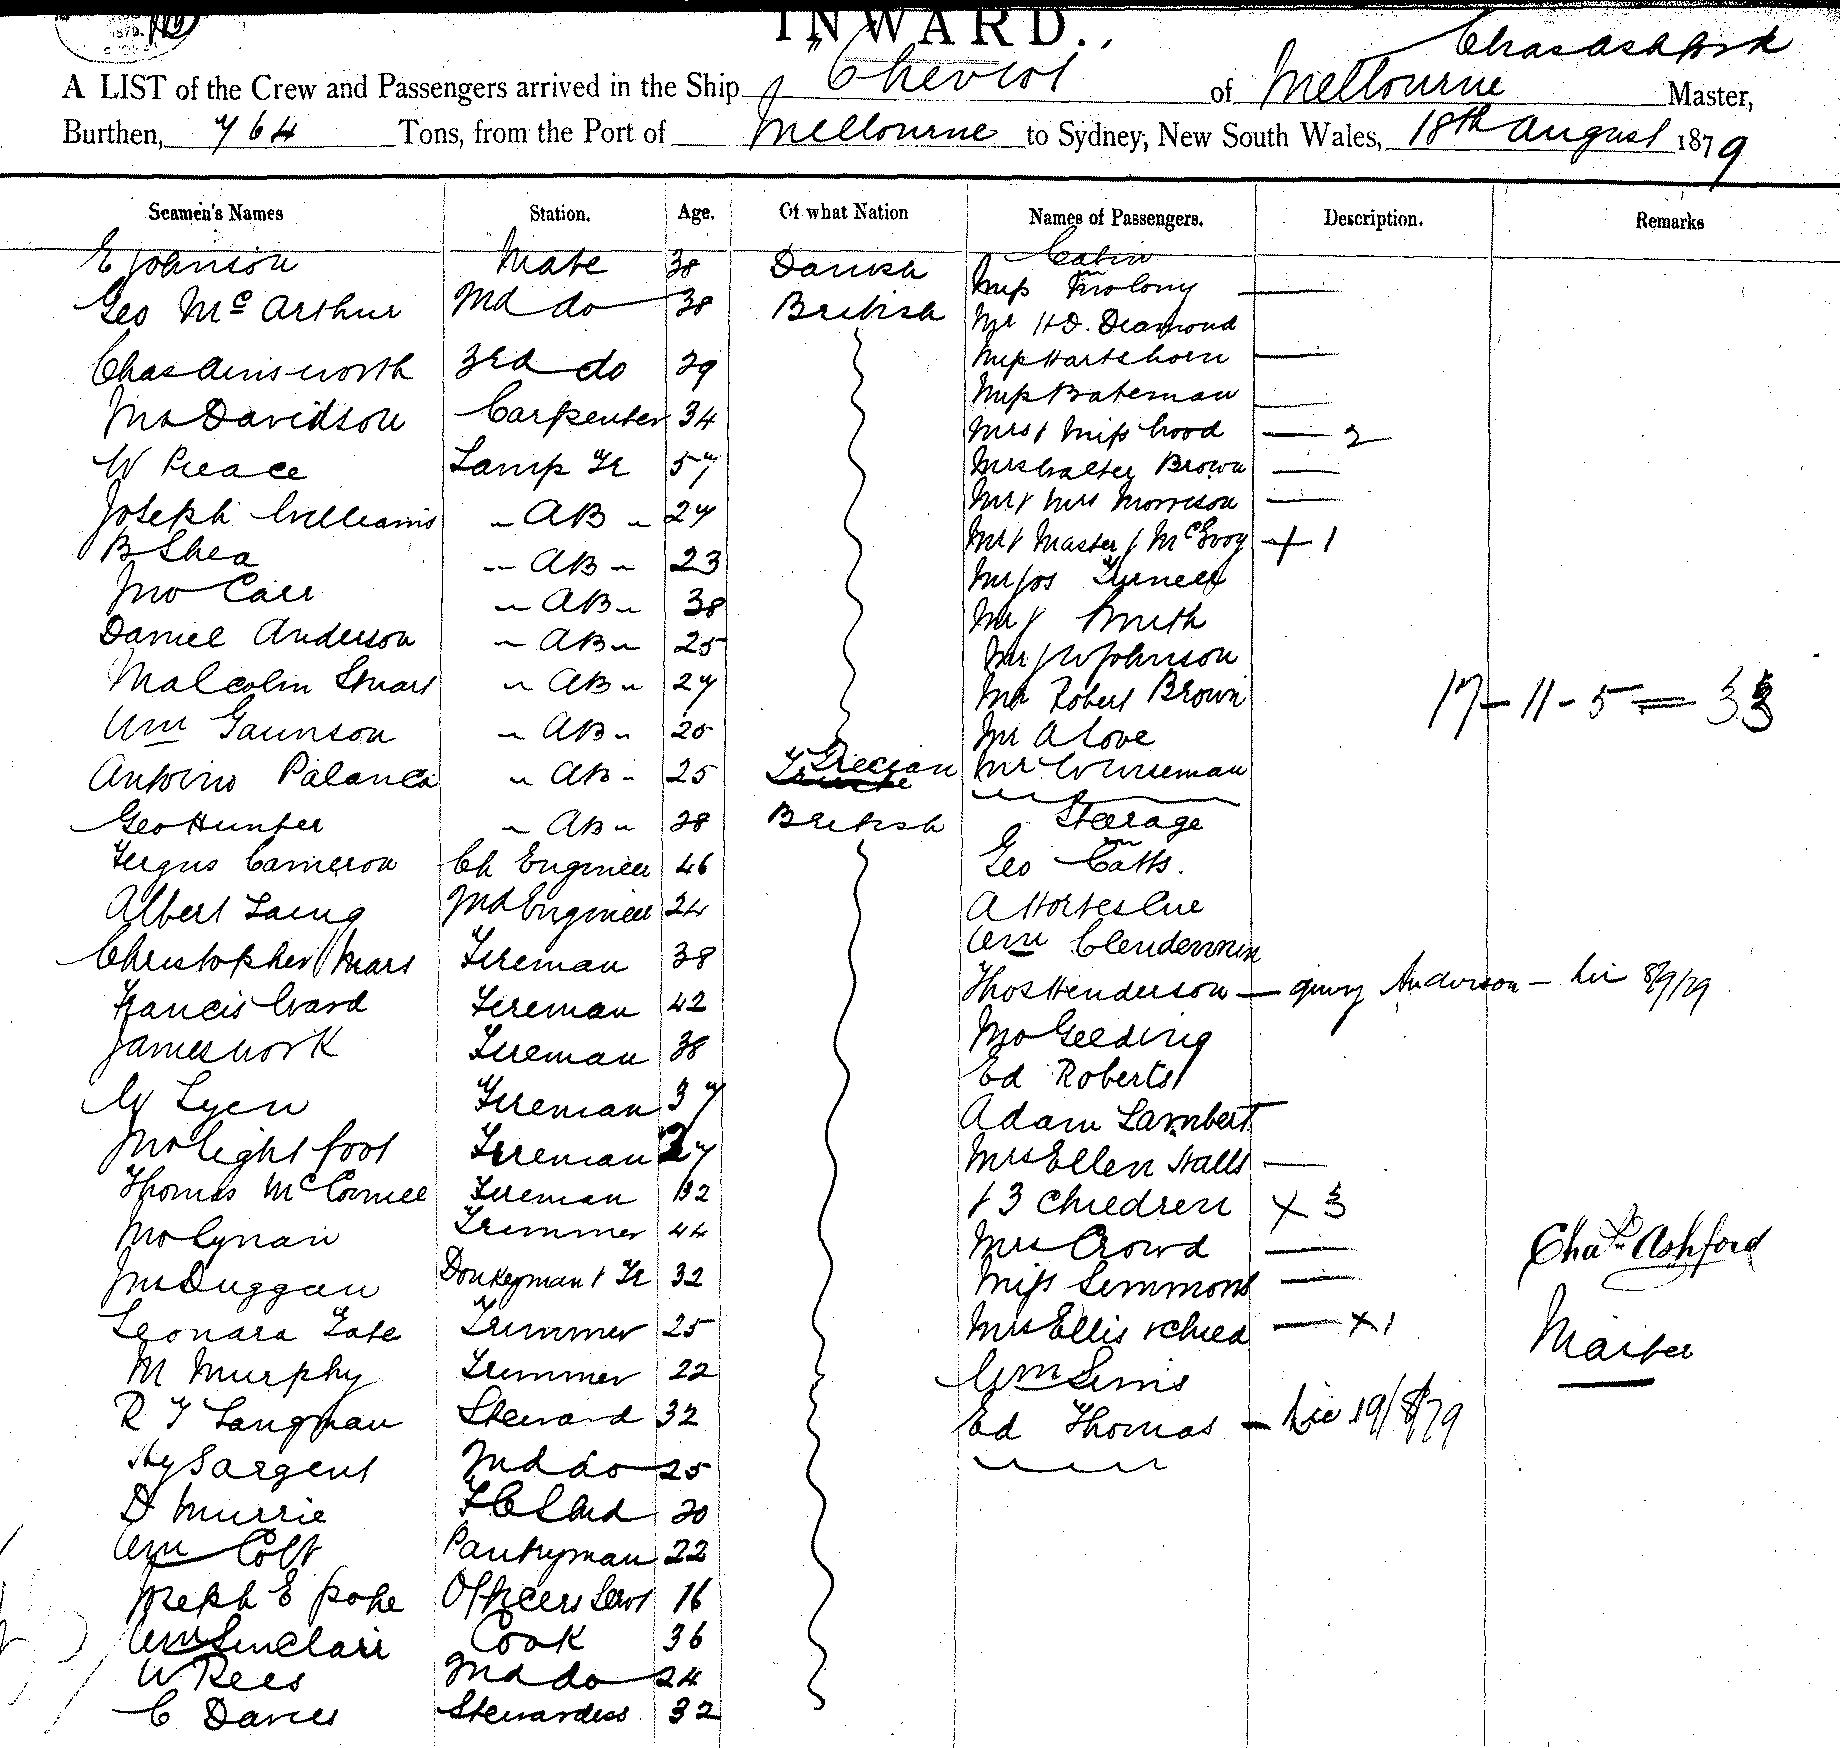 INWARD.
Chas Ashford
A LIST of the Crew and Passengers arrived in the Ship Cheviot of Melbourne Master,
Burthen, 764 Tons, from the Port of Melbourne to Sydney, New South Wales, 18th August 1879
Seamen's Names Station. Age. Of what Nation Names of Passengers. Description. Remarks
Cabin
E Johnson Mate 38 Danish Miss Molony —
Geo McArthur 2nd do 38 British Mr H.D. Diamond
Chas Ainsworth 3rd do 29 Miss Hartshorn —
Jno Davidson Carpenter 34 Miss Bateman —
W Peace Lamp Tr 57 Mrs & Miss Wood — 2
Joseph Williams AB 27 Mrs Walter Brown —
B Shea AB 23 Mr & Mrs Morrison —
Jno Carr AB 38 Mr & Master McEvoy + 1
Daniel Anderson AB 25 Mr Jos Turner
Malcolm Stuart AB 27 Mr J Smith
Wm Gaunson AB 25 Mr J W Johnson
Antoino Palanca AB 25 Grecian Mr Robert Brown
Geo Hunter AB 28 British Mr A Love
Fergus Cameron Ch Engineer 46 Mr
17 - 11 - 5 = 33
Albert Laing 2nd Engineer 24 Steerage
Christopher Mars Fireman 38 Geo Catts.
Francis Ward Fireman 42 A
James Work Fireman 38 Wm Clendennin
W Lyen Fireman 37 Thos Henderson — query Anderson — 8/9/79
Jno Lightfoot Fireman 27 Jno Geeding
Thomas McConnell Fireman 32 Ed Roberts
Jno Cynan Trimmer 44 Adam Lambert
Jno Duggan Donkeyman & Tr 32 Mrs Ellen Halls —
Leonard Tate Trimmer 25 & 3 Children × 3
M Murphy Trimmer 22 Mrs Crowd —
R T Langman Steward 32 Miss Simmons —
Hy Sargent 2nd do 25 Mrs Ellis & Child — × 1
D Murrie 20 Wm Sims
Wm Colt Pantryman 22 Ed Thomas — 19/8/79
Joseph E Pope Officers Servt 16
Wm Sinclair Cook 36
W Rees 2nd do 24
C Davies Stewardess 32
Chas Ashford
Master